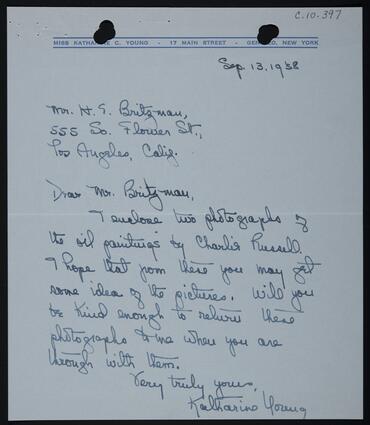 C.10.397
MISS KATHARINE C. YOUNG - 17 MAIN STREET - GENESEO, NEW YORK
Sep. 13, 1938
Mr. H. E. Britzman,
555 So. Flower St.,
Los Angeles, Calif.
Dear Mr. Britzman,
I enclose two photographs of
the oil paintings by Charlie Russell.
I hope that from these you may get
some idea of the pictures. Will you
be kind enough to return these
photographs to me when you are
through with them.
Very truly yours,
Katharine Young